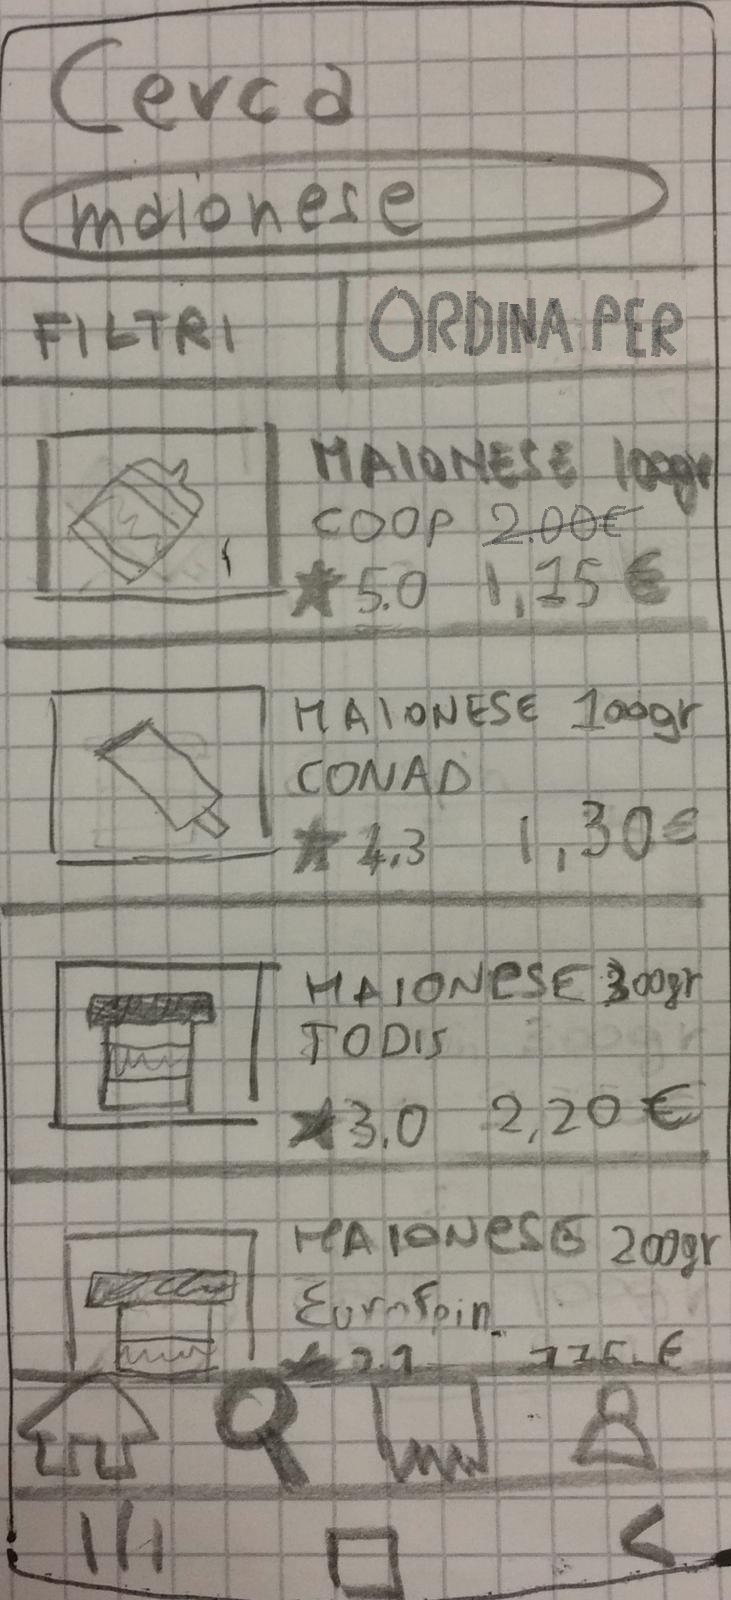 Cerca
maionese
FILTRI
ORDINA PER
MAIONESE 100gr
COOP 2.00€
★ 5.0 1,15 €
MAIONESE 100gr
CONAD
★ 4.3 1,30€
MAIONESE 300gr
TODIS
★ 3.0 2,20 €
MAIONESE 200gr
EuroSpin
€